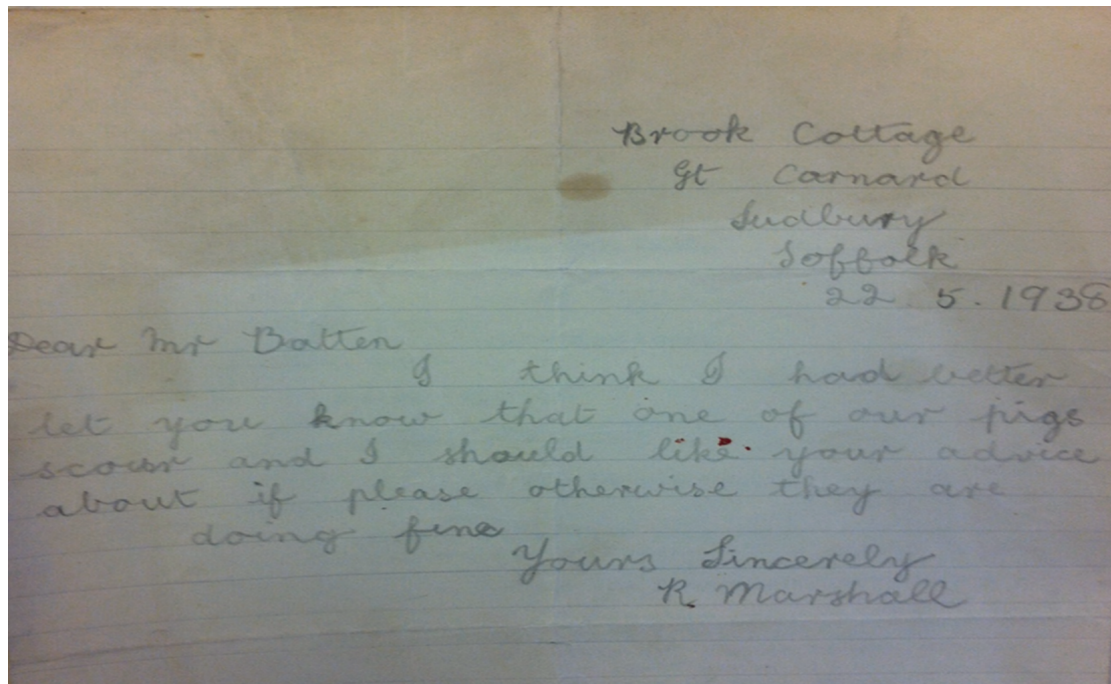 Brook Cottage
Gt Carnard
Sudbury
Soffolk
22 5. 1938
Dear Mr Batten
I think I had better
let you know that one of our pigs
scour and I should like your advice
about if please otherwise they are
doing fine
Yours Sincerely
R. Marshall